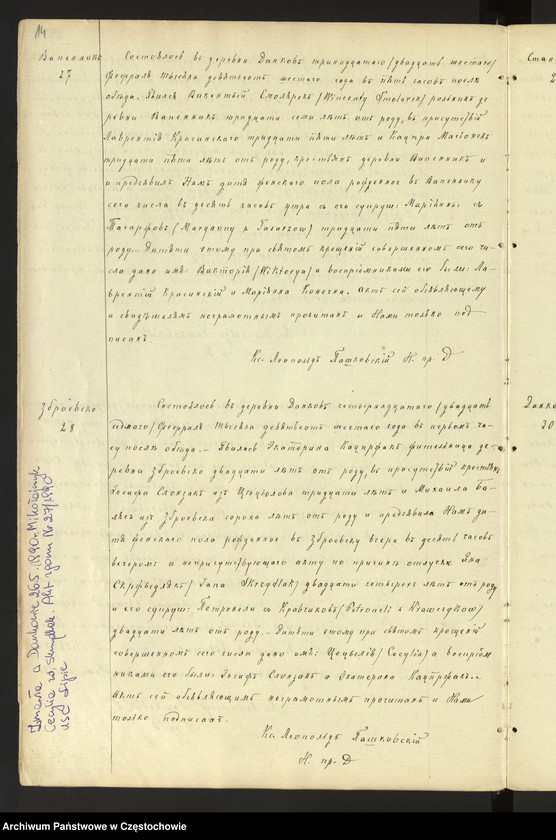 14
Вапенникъ
27
Состоялось въ деревни Данковъ тринадцатаго /двадцать шестаго/
Февраля тысяча девятьсотъ шестаго года въ пять часовъ послѣ
обѣда. Явился Викентый Смолярекъ /Wincenty Smolarek/ рольникъ де-
ревни Вапенникъ тридцати семи лѣтъ отъ роду, въ присутствіи
Лаврентія Красинскаго тридцати пяти лѣтъ и Кацпра
тридцати пяти лѣтъ отъ роду, крестьянъ деревни Вапенникъ и
и предъявилъ Намъ дитя женскаго пола рожденное въ Вапеннику
сего числа въ десять часовъ утра съ его супруги: Маріянны съ
/Maryanny z / тридцати пяти лѣтъ отъ
роду. Дитяти этому при святомъ крещеніи совершенномъ сего чи-
сла дано имя: Викторія /Wiktorya/ а воспріемниками его были: Ла-
врентій Красинскій и Маріянна Конечна. Актъ сей объявляющему
и свидѣтелямъ неграмотнымъ прочитанъ и Нами только под
писанъ.
Кс. Леопольдъ Пашковскій Н. пр. Д
Зброевско
28
Состоялось въ деревни Данковъ четырнадцатаго /двадцать
седмаго/ Февраля тысяча девятьсотъ шестаго года въ первомъ ча-
су послѣ обѣда. Явилась Екатерина жительница де-
ревни Зброевско двадцати лѣтъ отъ роду, въ присутствіи крестьянъ,
Іосифа Слонзакъ изъ тридцати лѣтъ и Михаила Ба-
изъ Зброевска сорока лѣтъ отъ роду и предъявила Намъ ди-
тя женскаго пола рожденное въ Зброевску вчера въ десять часовъ
вечеромъ а неприсутствующаго акту по причинѣ отпуска Яна
Скржыдлякъ /Jana Skrzydlak/ двадцати четырехъ лѣтъ отъ роду
и его супруги: Петронели съ Кравчиковъ /Petroneli z Krawczyków/
двадцати лѣтъ отъ роду. Дитяти этому при святомъ крещеніи
совершенномъ сего числа дано имя: Цецылія /Cecylia/ а воспріем
никами его были: Іосифъ Слонзакъ и Екатерина
Актъ сей объявляющимъ неграмотнымъ прочитанъ и Нами
только подписанъ.
Кс. Леопольдъ Пашковскій
Н. пр. Д
Zmarła a Dankowie 26.5.1990r. Mikołajczyk
Cecylia zd. Skrzydlak. Akt zgonu Nr 27/1990
USC Lipie
Стан
2
Данко
30
Archiwum Państwowe w Częstochowie